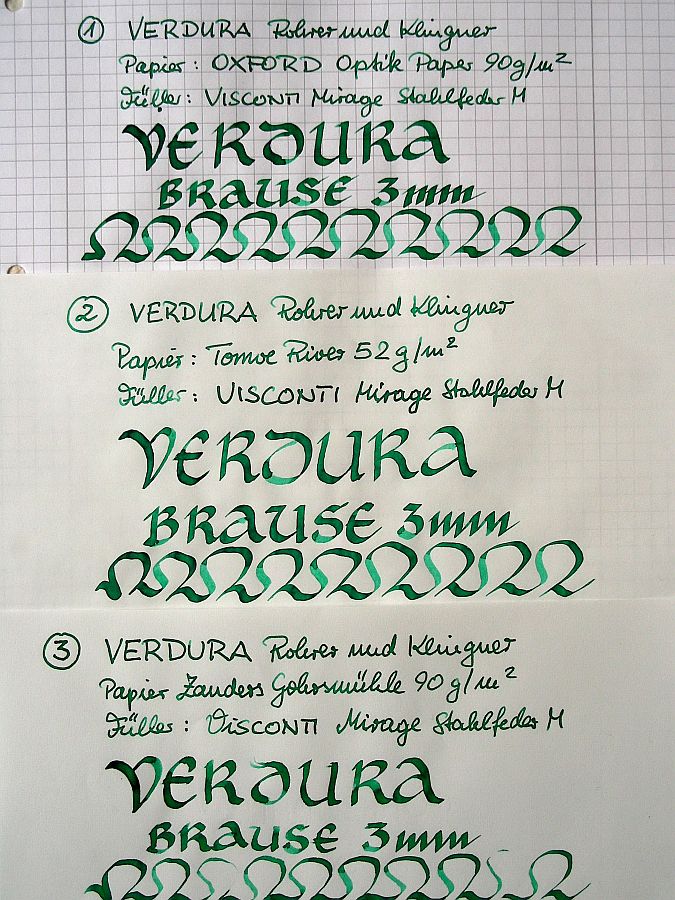 1 VERDURA Rohrer und Klingner
Papier: OXFORD Optik Paper 90g/m²
Füller: VISCONTI Mirage Stahlfeder M
VERDURA
BRAUSE 3mm
2 VERDURA Rohrer und Klingner
Papier: Tomoe River 52g/m²
Füller: VISCONTI Mirage Stahlfeder M
VERDURA
BRAUSE 3mm
3 VERDURA Rohrer und Klingner
Papier Zanders Gohrsmühle 90g/m²
Füller: VISCONTI Mirage Stahlfeder M
VERDURA
BRAUSE 3mm